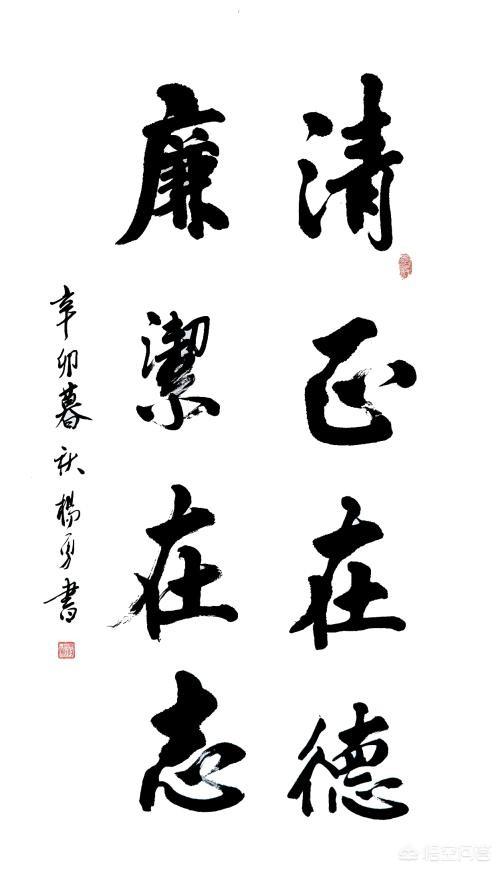 清正在德
廉潔在志
辛卯暮秋楊勇書
悟空问答